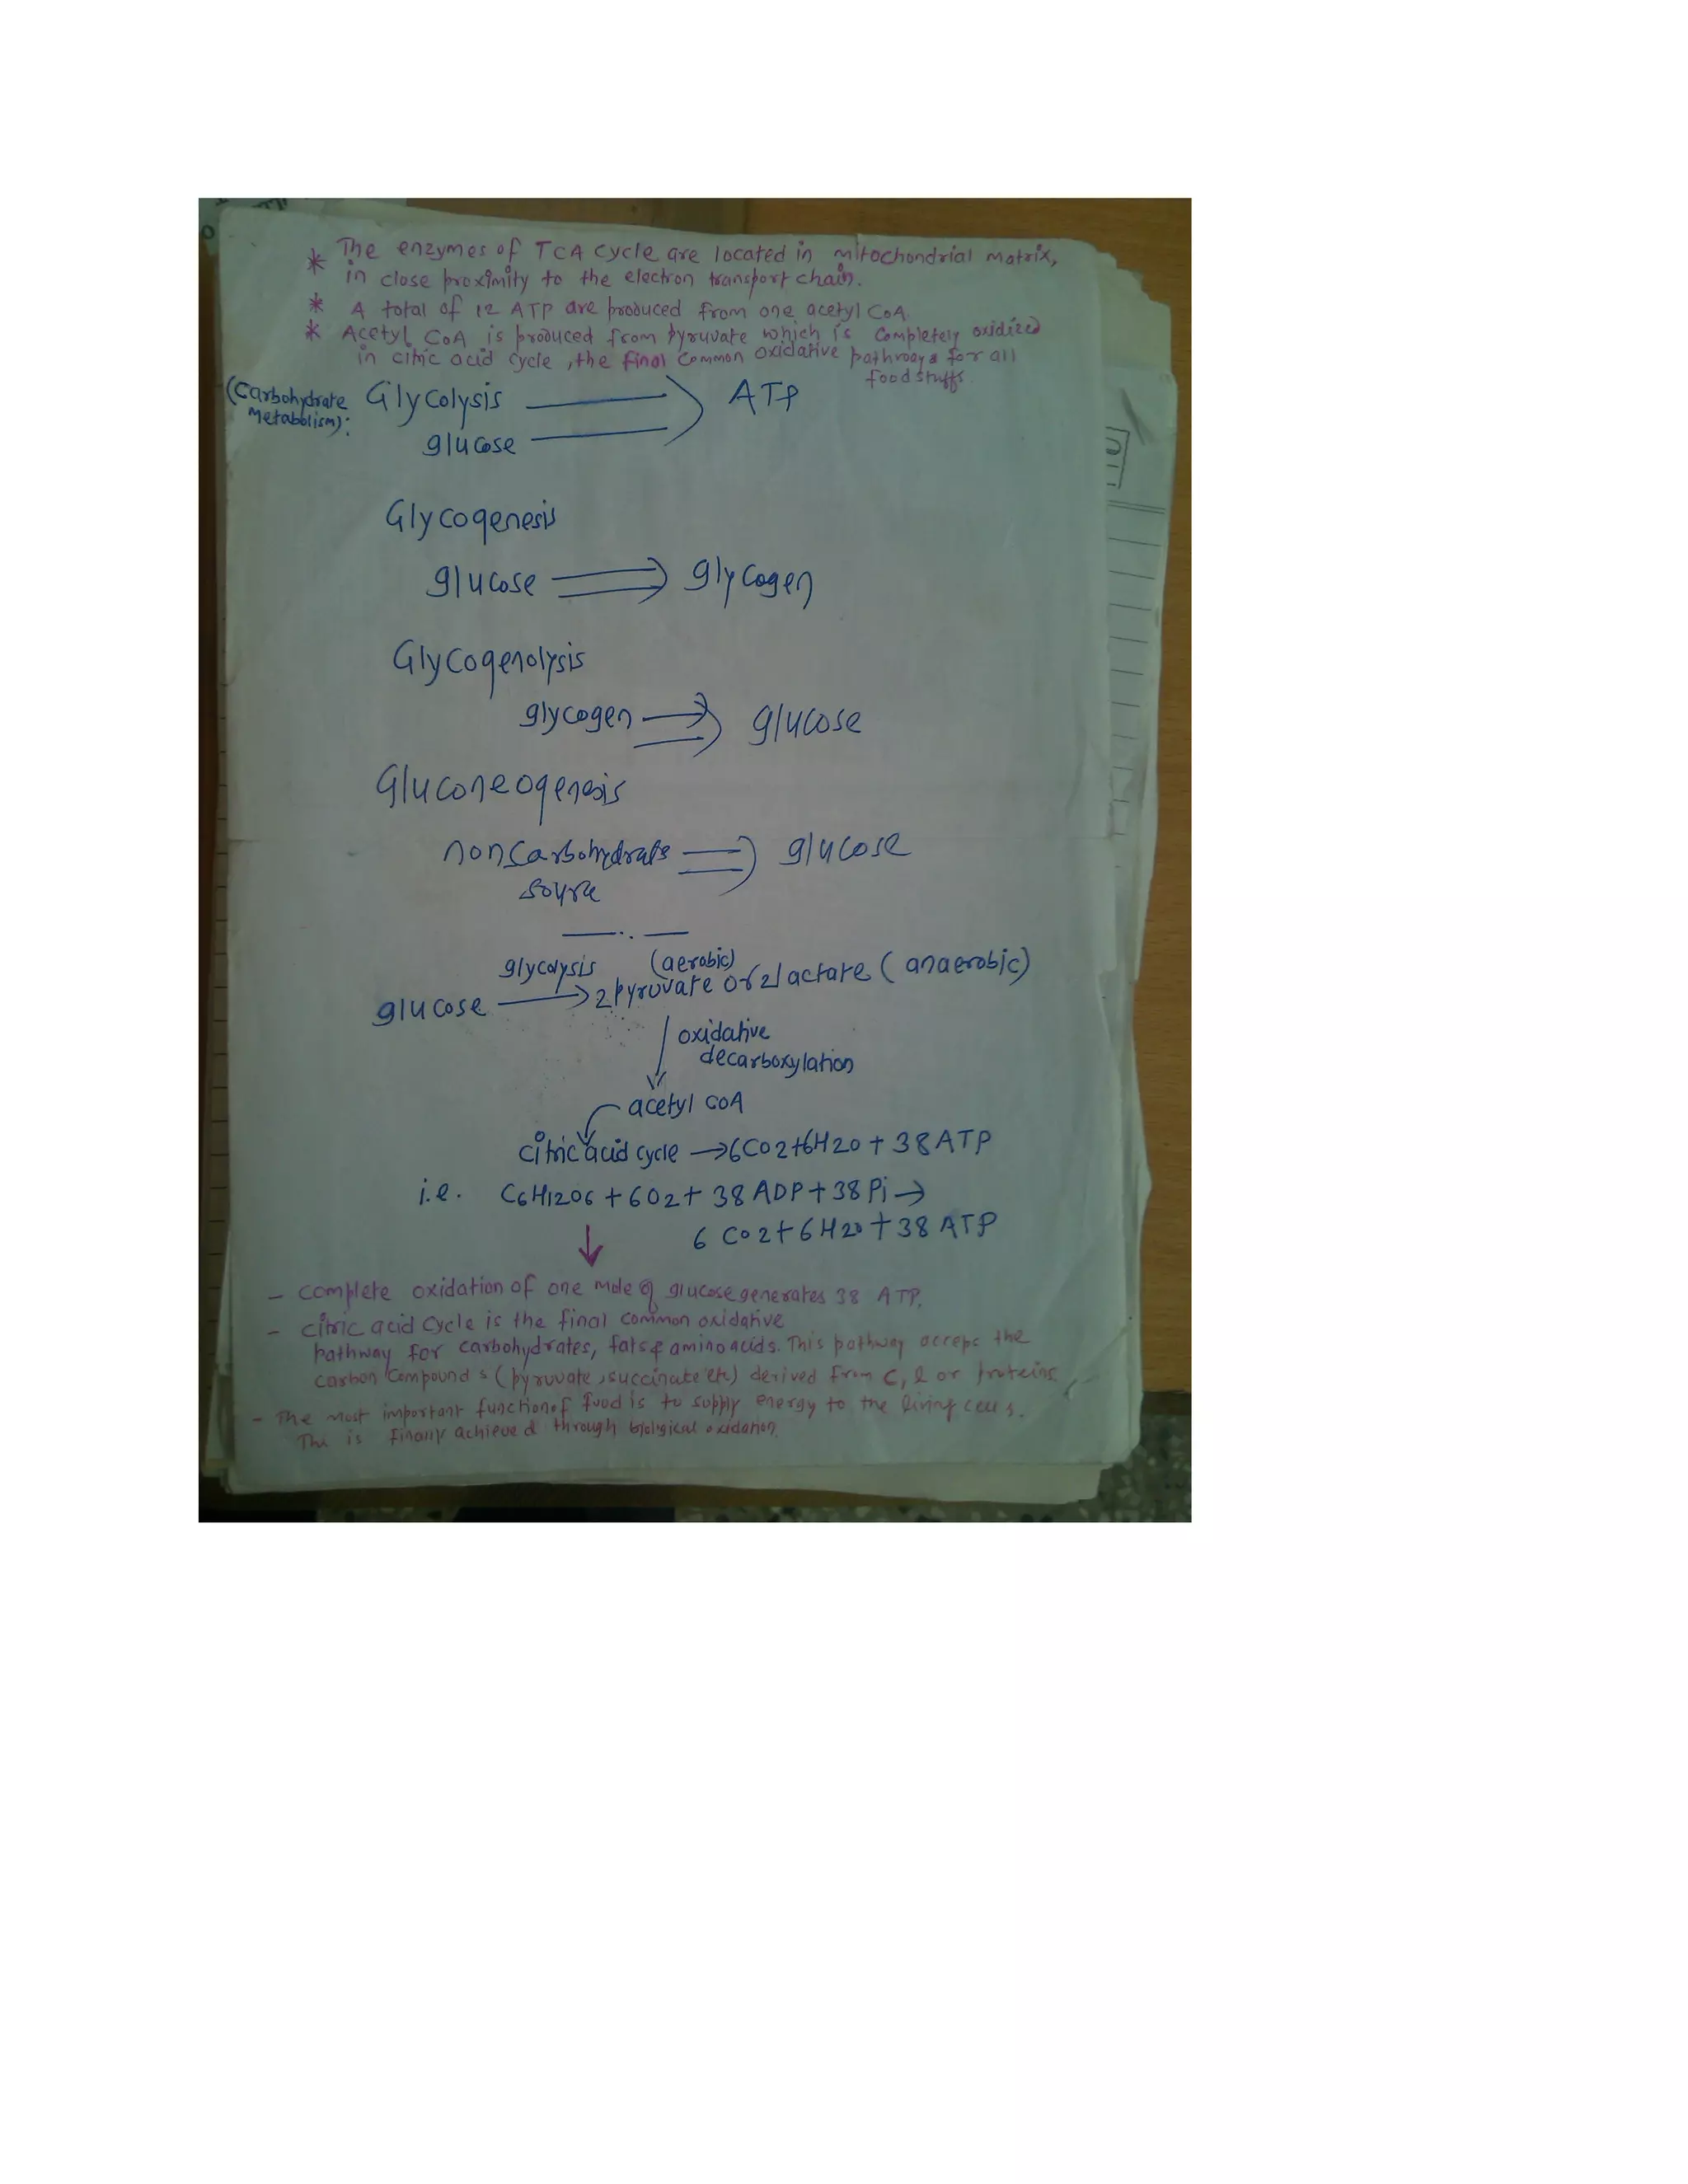 * The enzymes of TCA cycle are located in mitochondrial matrix,
in close proximity to the electron transport chain.
* A total of 12 ATP are produced from one acetyl CoA.
* Acetyl CoA is produced from pyruvate which is completely oxidized
in citric acid cycle, the final common oxidative pathways for all
foodstuffs.
(Carbohydrate Glycolysis ATP
Metabolism):
glucose
Glycogenesis
glucose ⇒ glycogen
Glycogenolysis
glycogen ⇒ glucose
Gluconeogenesis
noncarbohydrate ⇒ glucose
source
glycolysis (aerobic)
glucose → 2 pyruvate or 2 lactate (anaerobic)
oxidative
decarboxylation
acetyl CoA
citric acid cycle → 6CO2+6H2O + 38 ATP
i.e. C6H12O6 + 6O2 + 38 ADP + 38 Pi →
6 CO2 + 6 H2O + 38 ATP
↓
- complete oxidation of one mole of glucose generates 38 ATP.
- citric acid cycle is the final common oxidative
pathway for carbohydrates, fats & amino acids. This pathway acceps the
carbon compounds (pyruvate, succinate etc) derived from C, l or proteins.
- The most important function of food is to supply energy to the living cells.
The is finally achieved through biological oxidation.